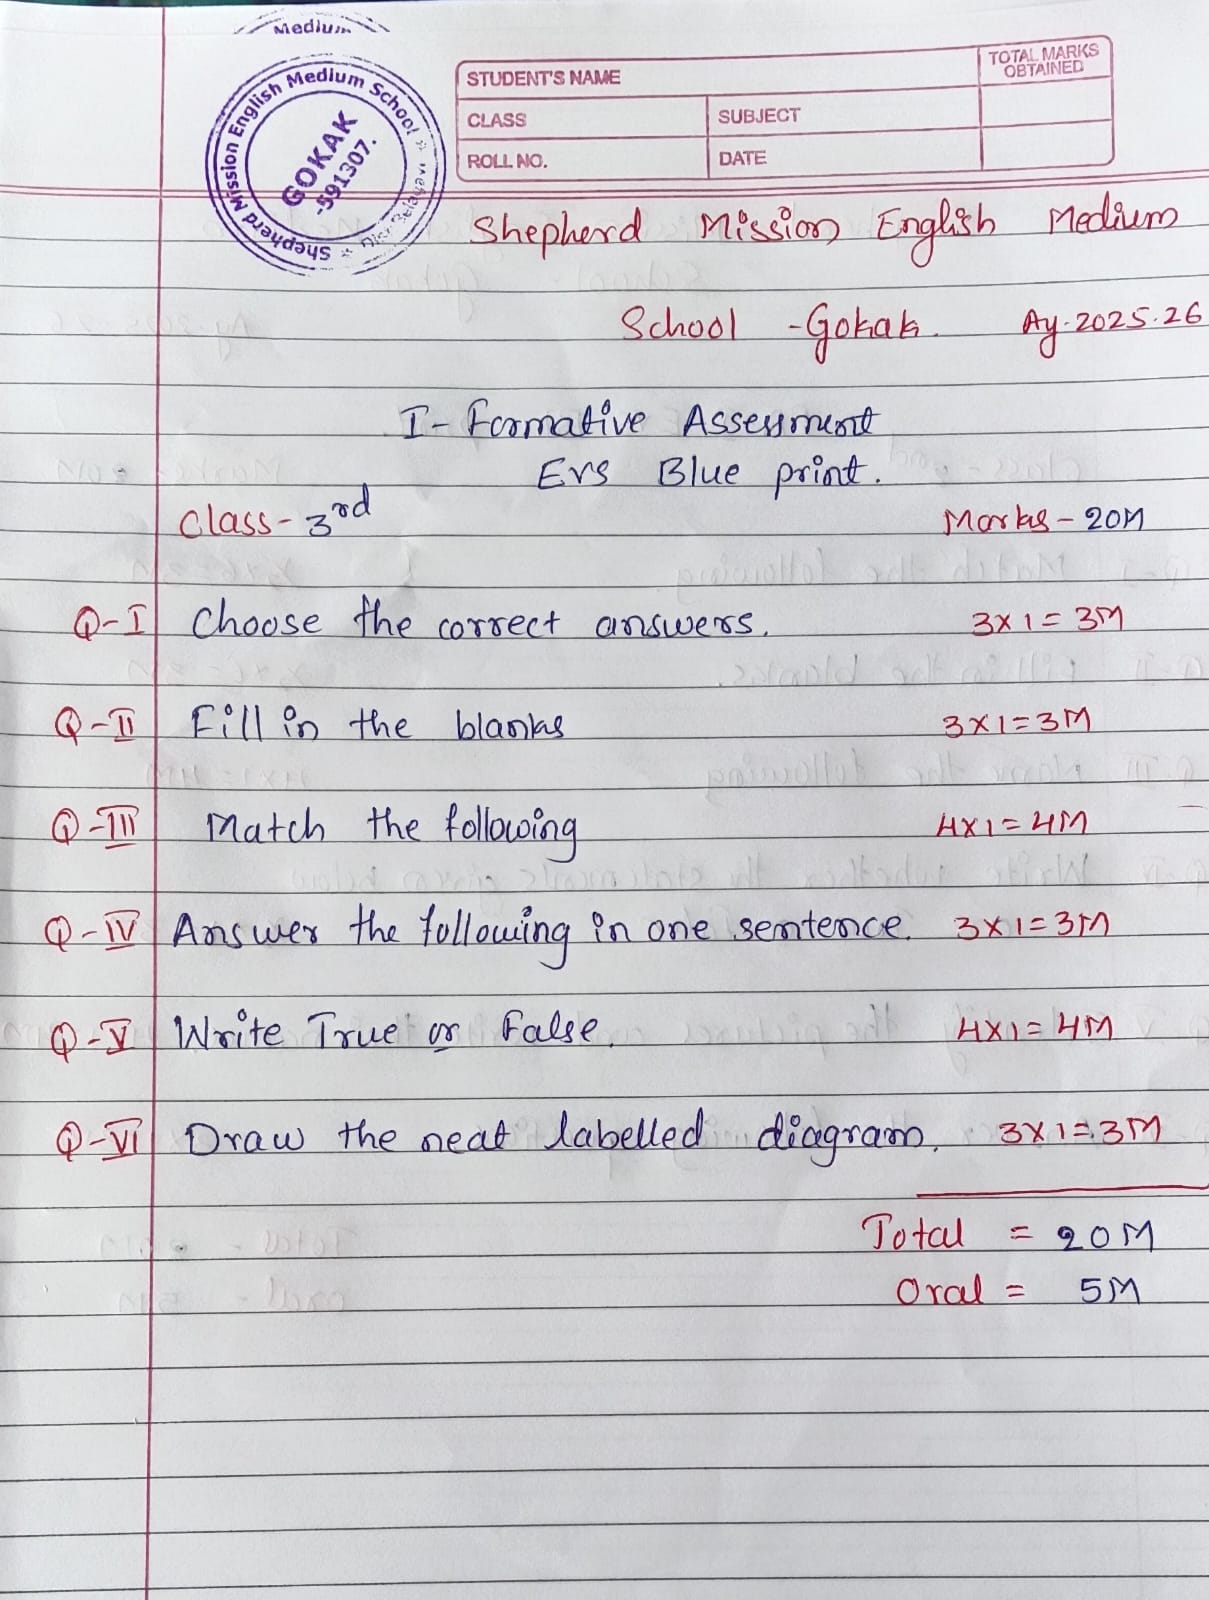 Medium
Shepherd Mission English Medium School
GOKAK
-591307.
STUDENT'S NAME
TOTAL MARKS OBTAINED
CLASS
SUBJECT
ROLL NO.
DATE
Shepherd Mission English Medium
School - Gokak. Ay-2025-26
I- Formative Assessment
Evs Blue print.
Class - 3rd Marks - 20M
Q-I Choose the correct answers. 3x1=3M
Q-II Fill in the blanks 3x1=3M
Q-III Match the following 4x1=4M
Q-IV Answer the following in one sentence. 3x1=3M
Q-V Write True or False. 4x1=4M
Q-VI Draw the neat labelled diagram. 3x1=3M
Total = 20M
Oral = 5M